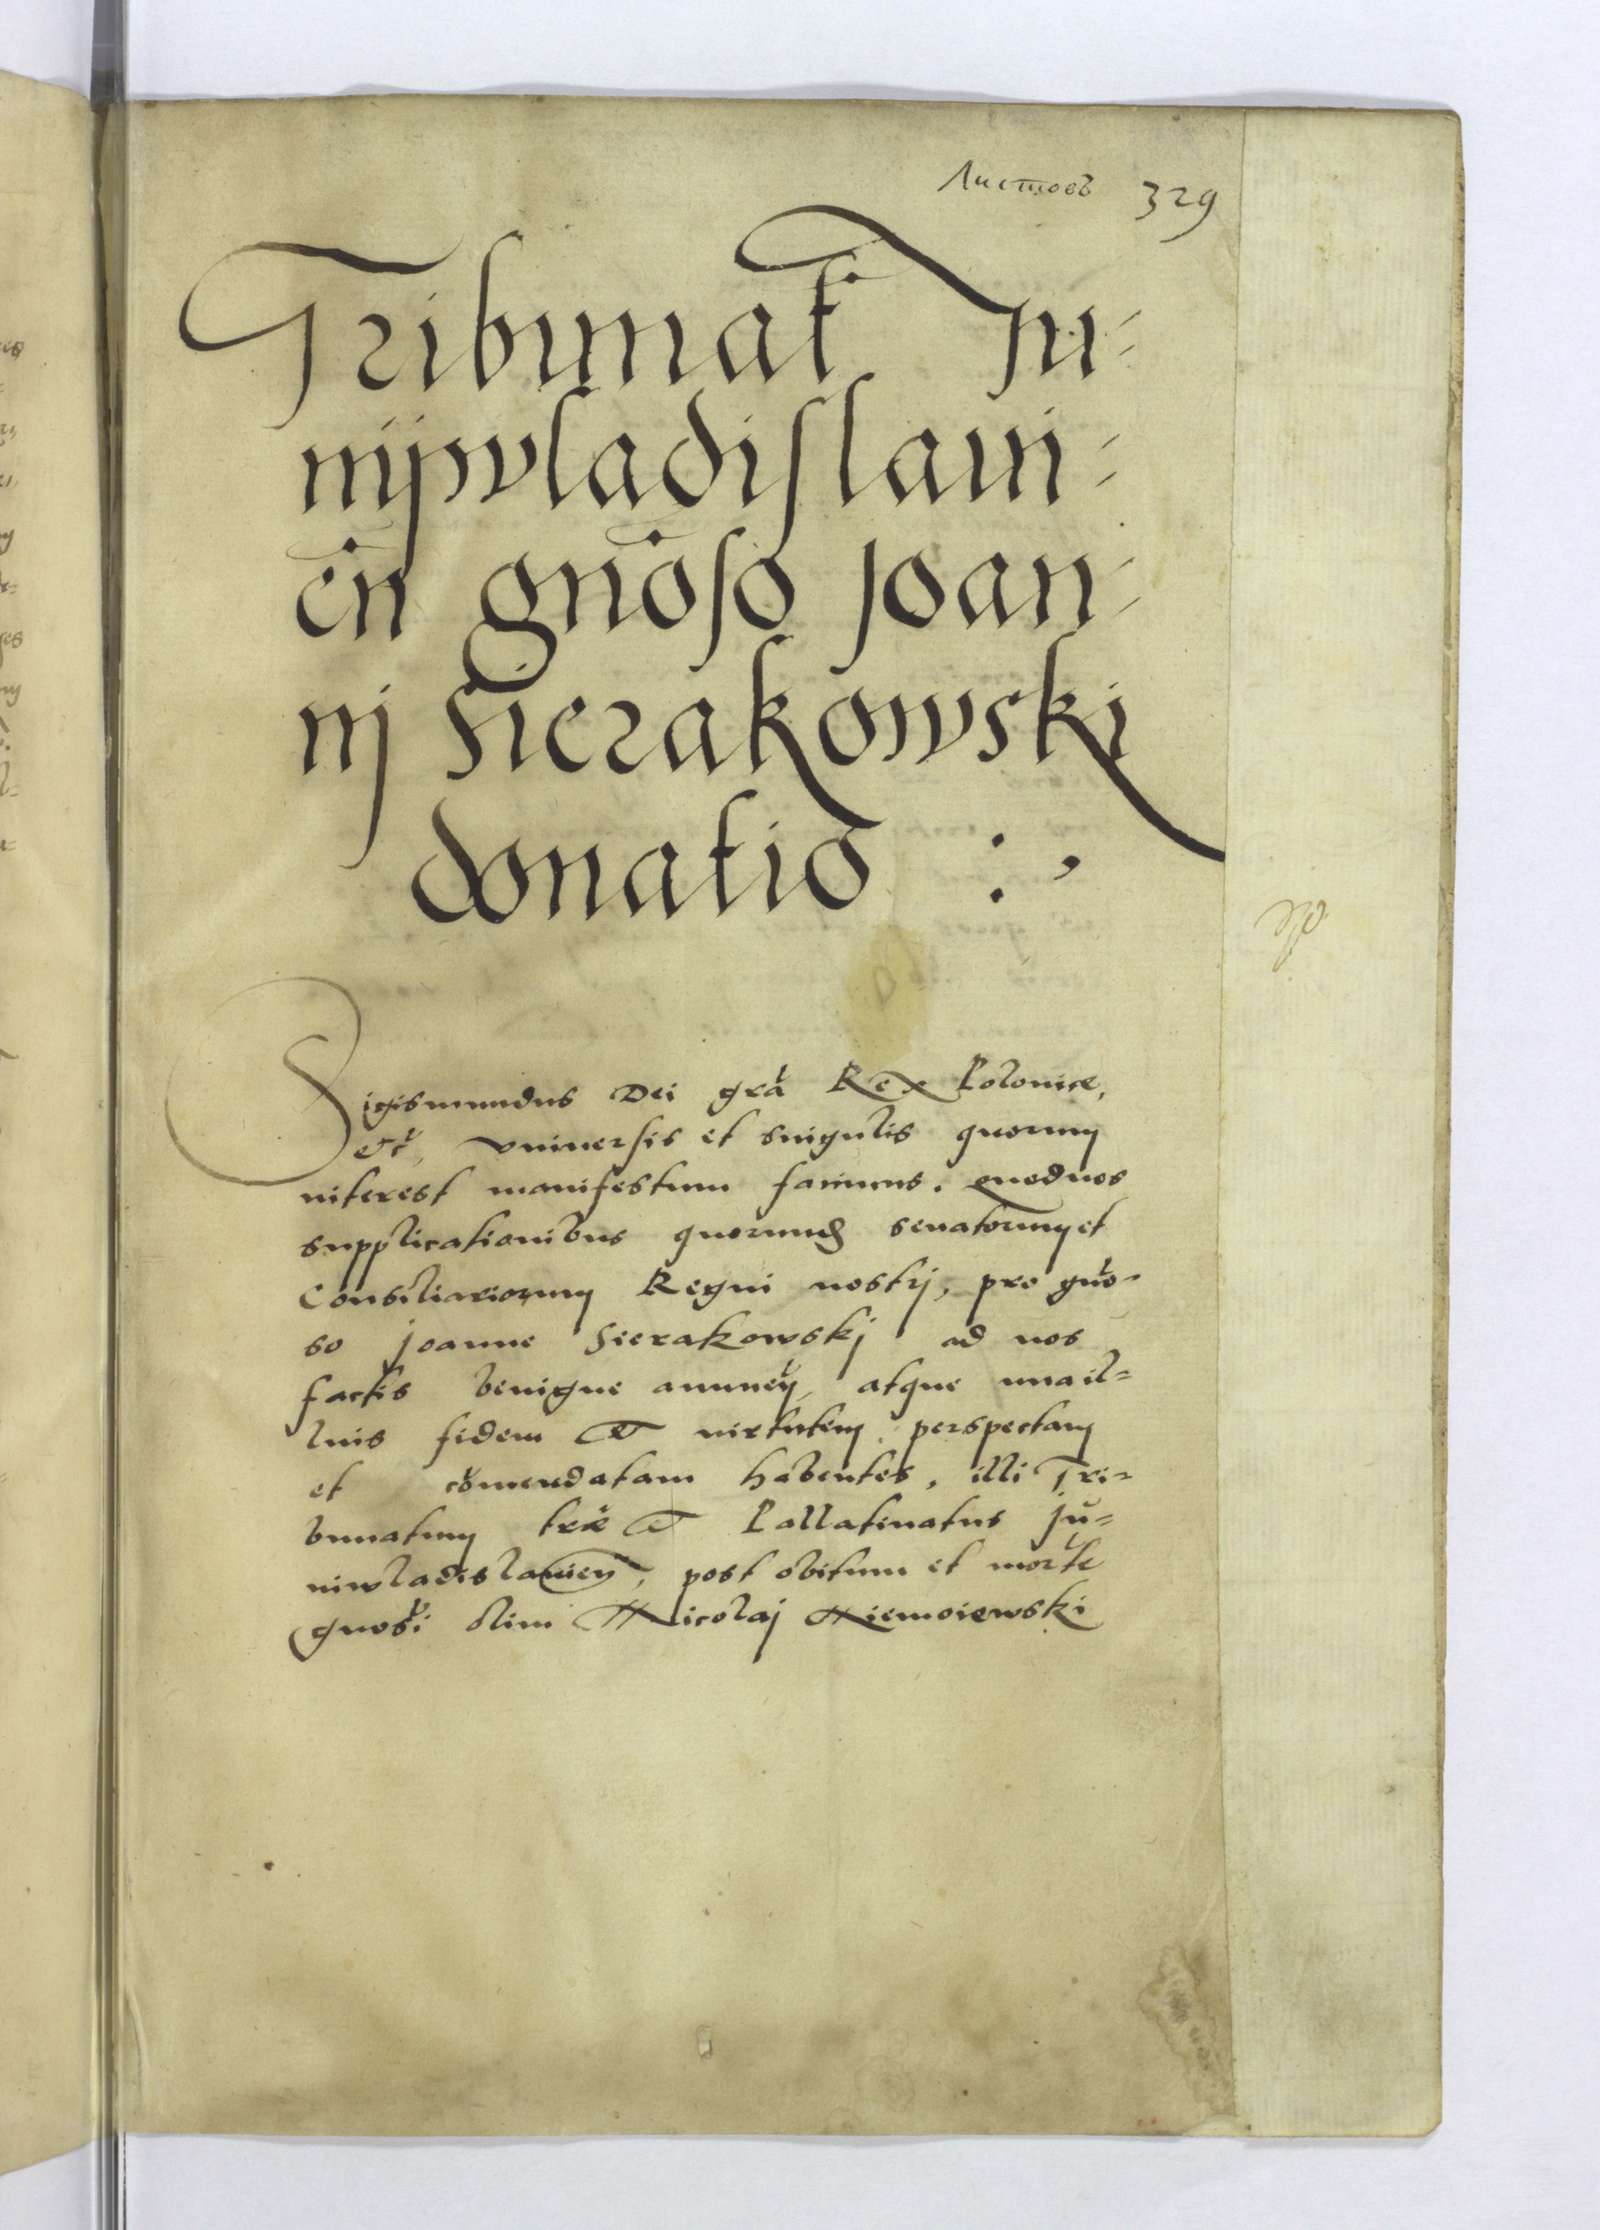 Листовъ 329
Tribunat Ju-
nijwladislaui-
en gnoso Joan-
nj Sierakowski
donatio :,
Sigismundus Dei gra Rex Polonice,
etc, vniuersis et singulis quorum
interest manifestum facimus. quod nos
supplicationibus quorund senatorum et
Consiliariorum Regni nostrj, pro gno-
so Joanne Sierakowskj ad nos
factis benigne annuen, atque una il=
lius fidem et uirtutem perspectam
et comendatam habentes, illi Tri-
bunatum trae et Pallatinatus Ju=
niwladislauien, post obitum et morte
gnosi olim Nicolaj Niemoiewski